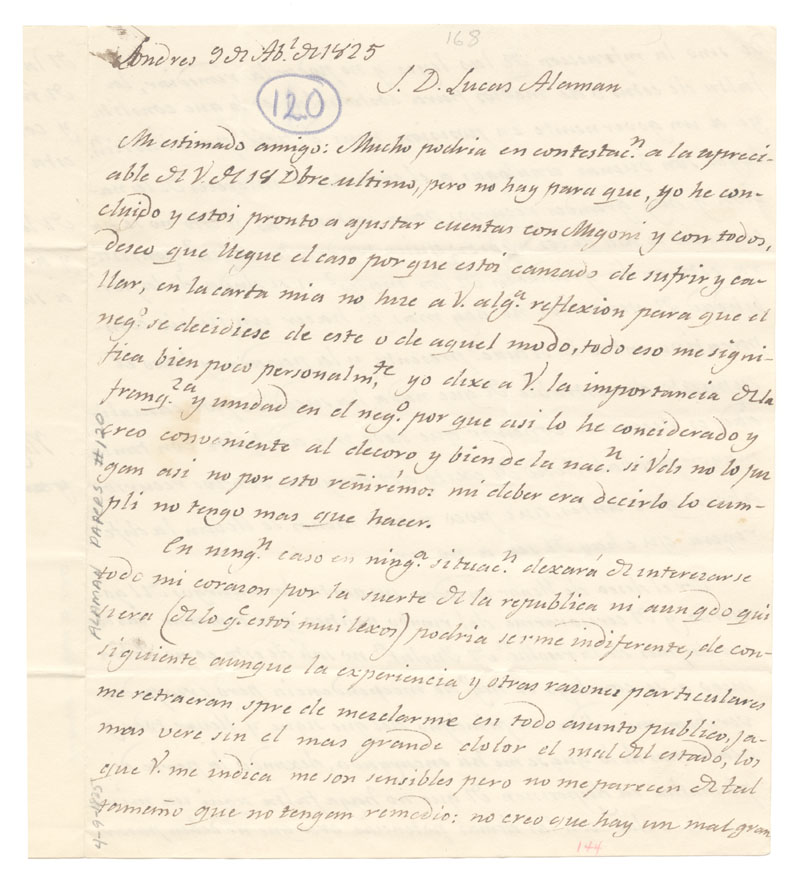 168
Londres 9 de Ab.l de 1825
S. D. Lucas Alaman
120
Mi estimado amigo: Mucho podria en contestac.n a la apreci-
able de V. de 18 Dbre ultimo, pero no hay para que, yo he con-
cluido y estoi pronto a ajustar cuentas con Migoni y con todos,
deseo que llegue el caso por que estoi canzado de sufrir y ca-
llar, en la carta mia no hize a V. alg.a reflexion para que el
neg.o se decidiese de este o de aquel modo, todo eso me signi-
fica bien poco personalm.te yo dixe a V. la importancia de la
franq.za y unidad en el neg.o por que asi lo he conciderado y
creo conveniente al decoro y bien de la nac.n si Vds no lo juz
gan asi no por esto reñirémos: mi deber era decirlo lo cum-
pli no tengo mas que hacer.
En ning.n caso en ning.a situac.n dexará de interezarse
todo mi corazon por la suerte de la republica ni aun qdo qui
siera (de lo q.e estoi mui lexos) podria serme indiferente, de con-
siguiente aunque la experiencia y otras razones particulares
me retraeran spre de mezclarme en todo asunto publico, ja-
mas vere sin el mas grande dolor el mal del estado, los
que V. me indica me son sensibles pero no me parecen de tal
tamaño que no tengan remedio: no creo que hay un mal gran
144
ALAMAN PAPERS #120
4-9-1825